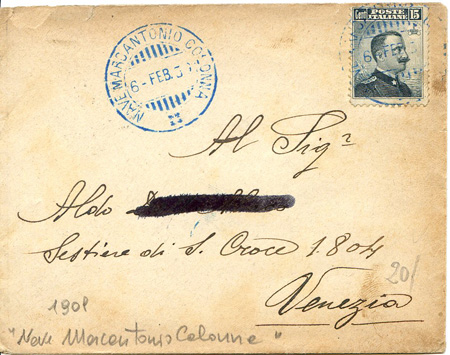 NAVE MARCANTONIO COLONNA
6-FEB.
Cent. POSTE ITALIANE 15
Al Sigr
Aldo
Sestiere di S. Croce 1804
Venezia
20/
1908
"Nave Marcantonio Colonna"